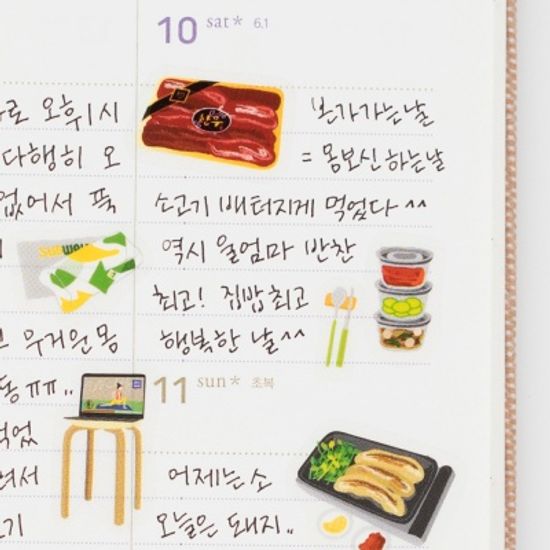 로 오휘시
다행히 오
없어서 푹
SUBWAY
무거운 몸
동 ㅠㅠ..
먹었
려서
기
10 sat* 6.1
한우
본가가는날
= 몸보신하는날
소고기 배터지게 먹었다 ^^
역시 울엄마 반찬
최고! 집밥최고
행복한 날^^
11 sun* 초복
어제는소
오늘은 돼지..